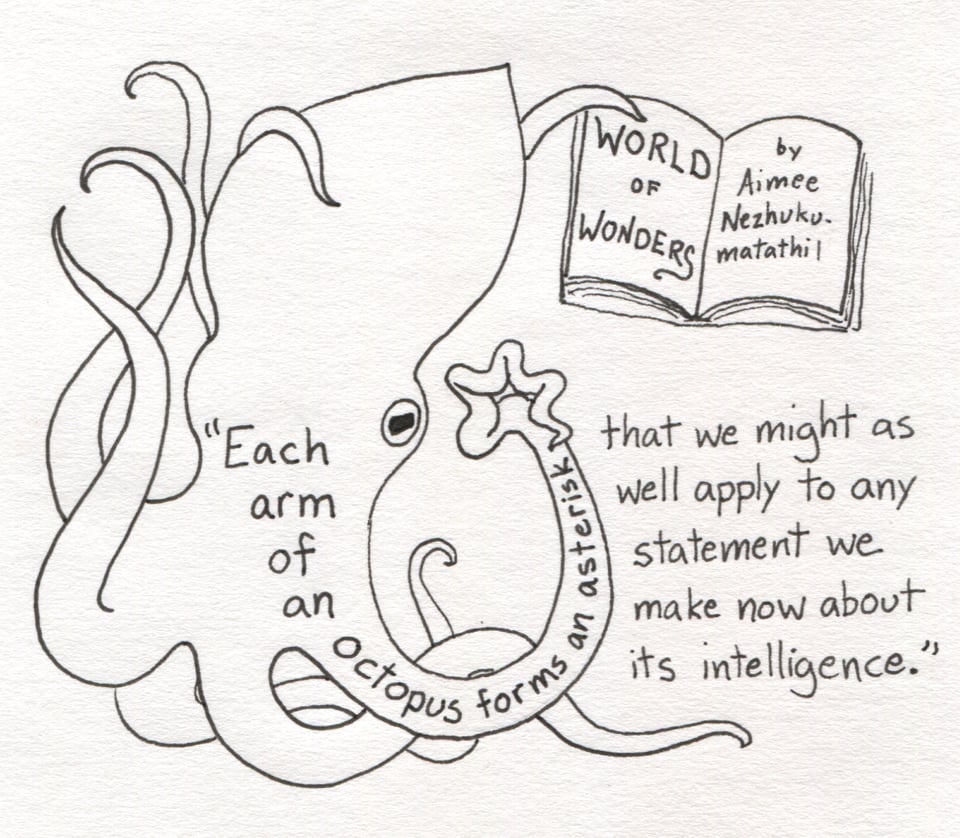 WORLD
OF
WONDERS
by
Aimee
Nezhuku-
matathil
"Each
arm
of
an
octopus forms an asterisk
that we might as
well apply to any
statement we
make now about
its intelligence."